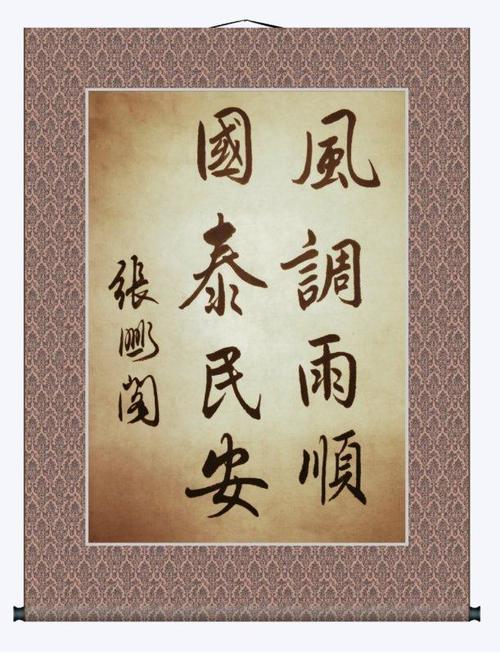 風調雨順
國泰民安
張